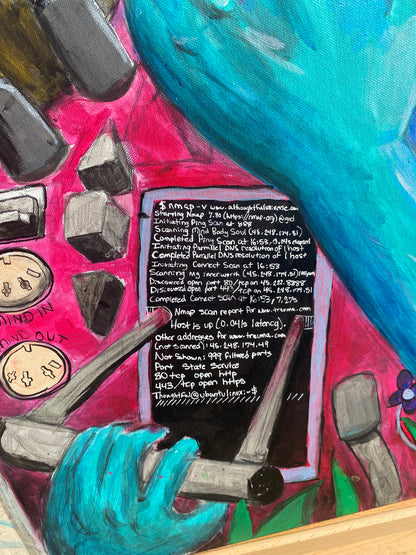 $ nmap -v www.athoughtfulsense.com
Starting Nmap 7.80 (https://nmap.org) @god
Initiating Ping Scan at
Scanning Mind Body Soul (45.248.174.51)
Completed Ping Scan at 16:53, elapsed
Initiating Parallel DNS resolution of 1 host
Completed Parallel DNS resolution of 1 host
Initiating Connect Scan at 16:53
Scanning my inner worth (45.248.174.51)
Discovered open port 80/tcp on 45.
Discovered open port 443/tcp on 45.248.174.51
Completed Connect Scan at 16:53,
Nmap scan report for www.trauma.com
Host is up (0.041s latency).
Other addresses for www.trauma.com
(not scanned): 45.248.174.49
Not Shown: 999 filtered ports
Port State Service
80 tcp open http
443/tcp open https
Thoughtful@ubuntulinux:~$
MIND IN
MIND OUT